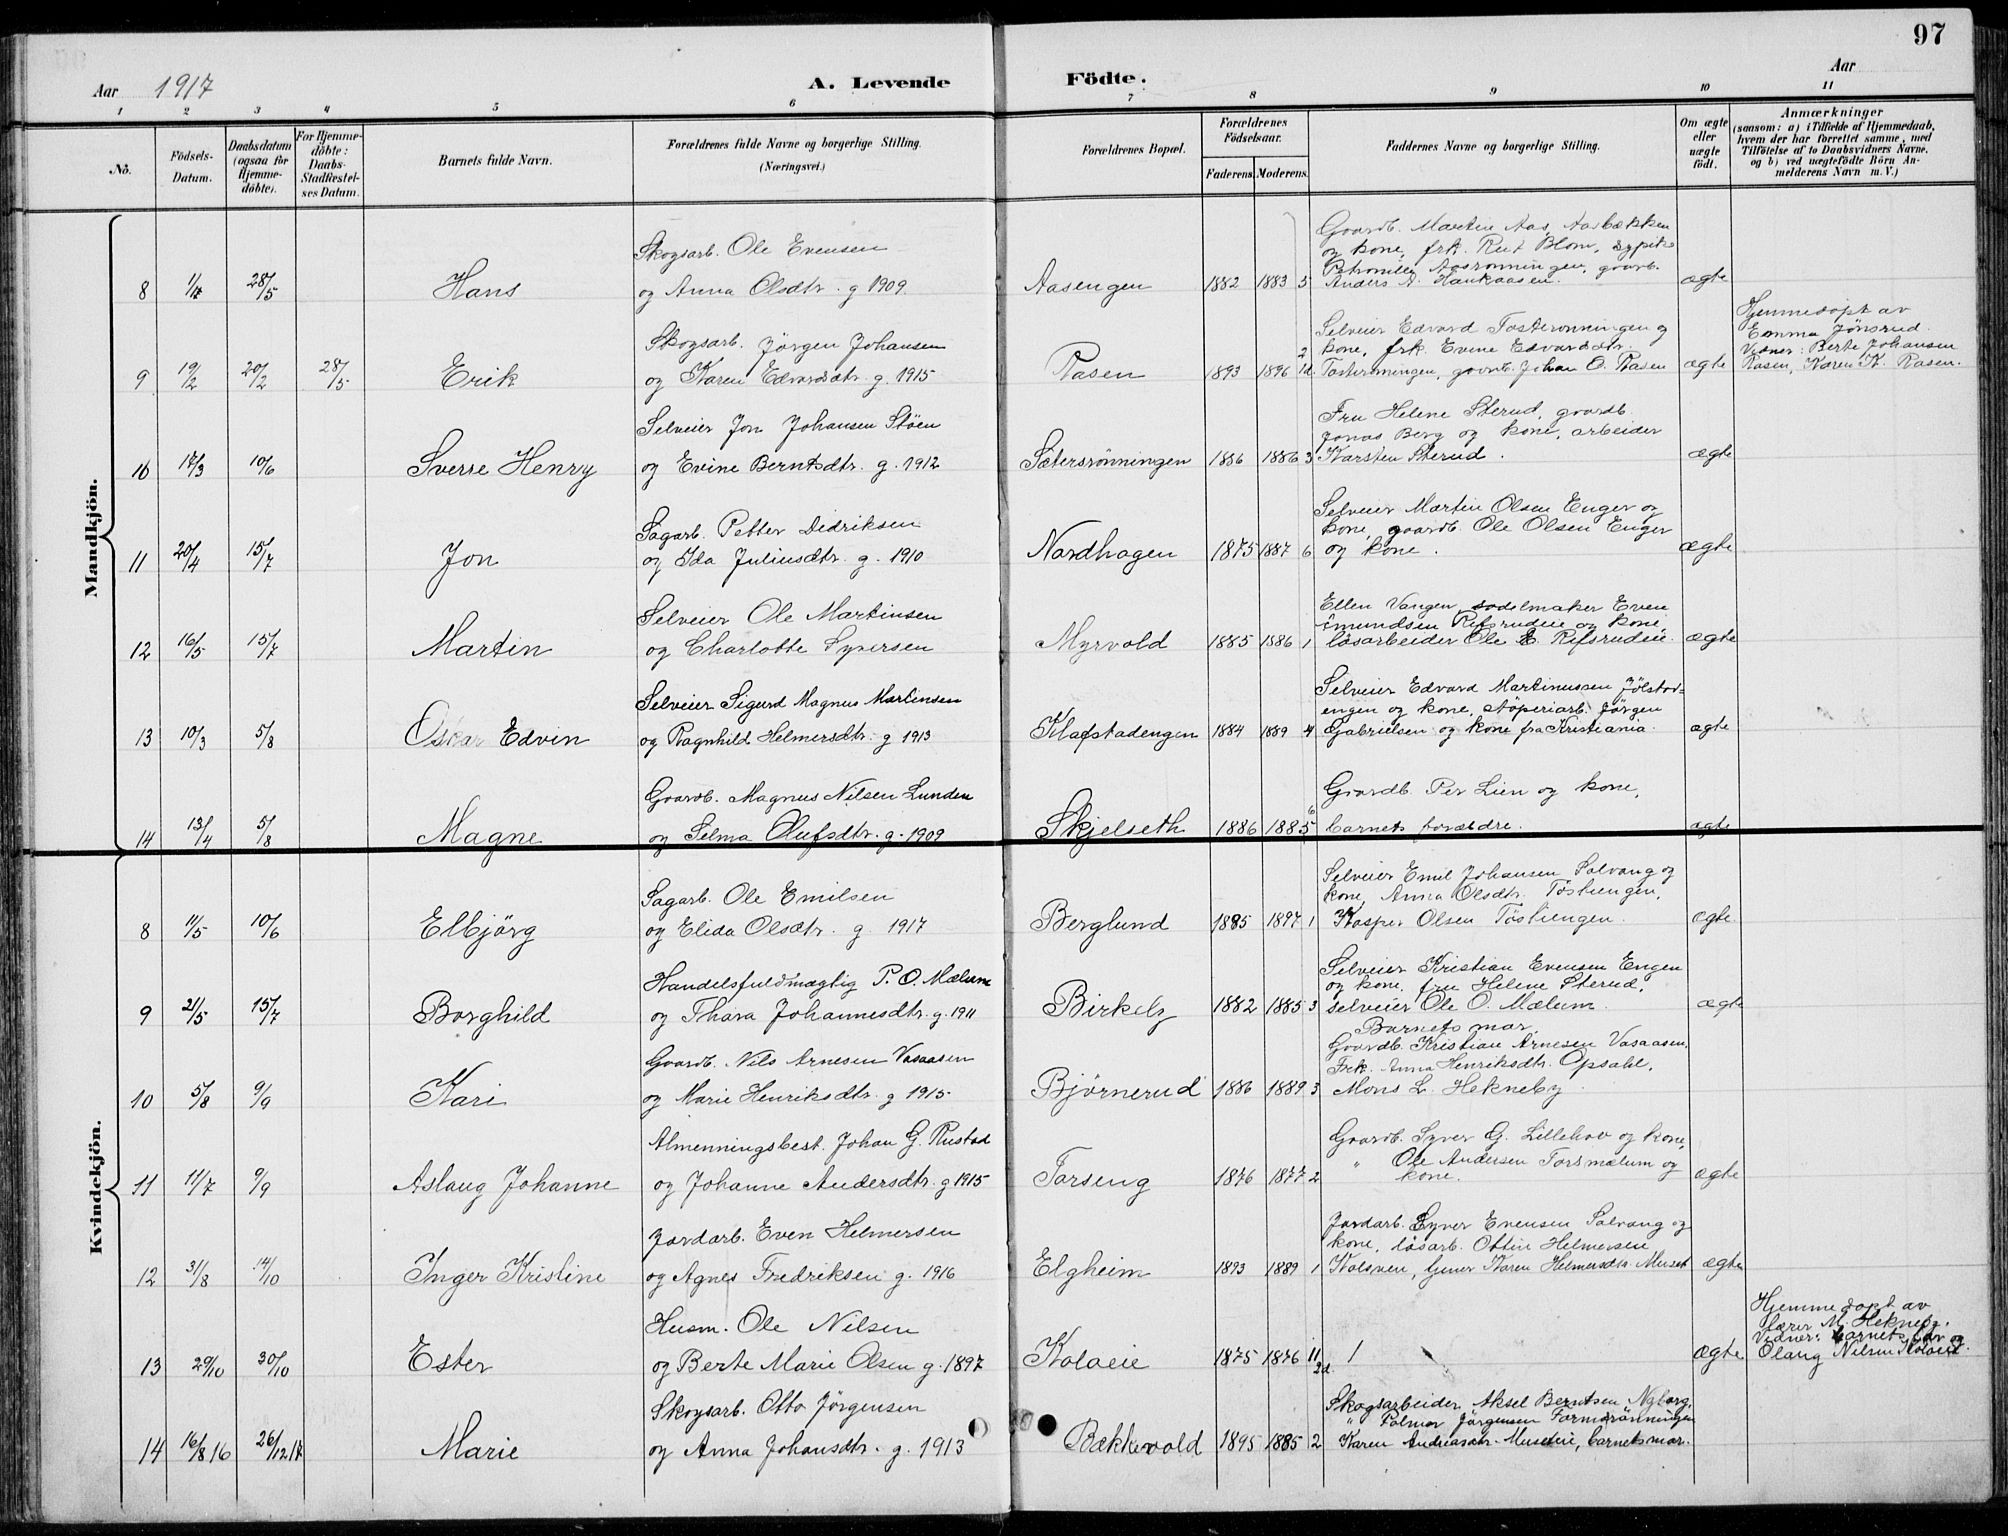 97
Aar 1917
A. Levende Födte.
Aar
1 2 3 4 5 6 7 8 9 10 11
No.
Födsels-Datum.
Daabsdatum (ogsaa for Hjemme-döbte).
For Hjemme-döbte: Daabs-Stadfæstel-ses Datum.
Barnets fulde Navn.
Forældrenes fulde Navne og borgerlige Stilling.
(Næringsvei.)
Forældrenes Bopæl.
Forældrenes Födselsaar.
Faderens. Moderens.
Faddernes Navne og borgerlige Stilling.
Om ægte eller uægte födt.
Anmærkninger
(saasom: a) i Tilfælde af Hjemmedaab,
hvem der har forrettet samme, med
Tilföielse af to Daabsvidners Navne,
og b) ved uægtefödte Börn An-
melderens Navn m. V.)
Mandkjön.
Gaardb. Martin Aas, Aasbækken
Skogsarb. Ole Evensen og kone, frk. Rut Blom, sypike
Petronille Aasrønningen, gaardb.
8 1/4 28/5 Hans og Anna Olsdtr. g 1909. Aasengen 1882 1883 5 Anders A. Haukaasen. ægte
Hjemmedøpt av
Skogsarb. Jørgen Johansen Selveier Edvard Tosterønningen og Emma Jønsrud.
2 kone, frk. Evine Edvardsdtr. Vidner: Berte Johansen
9 19/2 20/2 28/5 Erik og Karen Edvardsdtr. g. 1915 Rasen 1893 1896 1d. Tosterønningen, gaardb. Johan O. Rasen ægte Rasen, Karen K. Rasen.
Selveier Jon Johansen Støen Fru Helene Sterud, gaardb.
Jonas Berg og kone, arbeider
10 14/3 10/6 Sverre Henry og Evine Berntsdtr. g. 1912 Sætersrønningen 1886 1886 3 Karsten Sterud. ægte
Sagarb. Petter Didriksen Selveier Martin Olsen Enger og
kone, gaardb. Ole Olsen Enger
11 20/4 15/7 Jon og Ida Juliusdtr. g. 1910 Nordhagen 1875 1887 6 og kone. ægte
Selveier Ole Martinsen Ellen Vangen, sadelmaker Even
Amundsen Rifsrudeie og kone,
12 16/5 15/7 Martin og Charlotte Syversen Myrvold 1885 1886 1 løsarbeider Ole E. Rifsrudeie. ægte
Selveier Sigurd Magnus Martinsen Selveier Edvard Martinussen Jølstad=
engen og kone, støperiarb. Jørgen
13 10/3 5/8 Oskar Edvin og Ragnhild Helmersdtr. g 1913 Klafstadengen 1884 1889 4 Gabrielsen og kone fra Kristiania. ægte
Gaardb. Magnus Nilsen Lunden Gaardb. Per Lien og kone,
14 13/4 5/8 Magne og Selma Olufsdtr. g. 1909 Skjelseth 1886 1885 6 barnets forældre. ægte
Kvindekjön.
Sagarb. Ole Emilsen Selveier Emil Johansen Solvang og
kone, Anna Olsdtr. Tøstiengen,
8 11/5 10/6 Elbjörg og Elida Olsdtr. g. 1917 Berglund 1885 1897 1 Kasper Olsen Tøstiengen. ægte
Handelsfuldmægtig P. O. Mælum Selveier Kristian Evensen Engen
og kone, fru Helene Sterud,
9 21/5 15/7 Borghild og Thora Johannesdtr. g. 1911 Birkely 1882 1885 3 selveier Ole O. Mælum. ægte
Barnets mor,
Gaardb. Nils Arnesen Vasaasen Gaardb. Kristian Arnesen Vasaasen,
Frk. Anna Henriksdtr. Opsahl,
10 5/8 9/9 Kari og Marie Henriksdtr. g 1915. Bjørnerud 1886 1889 3 Mons L. Hekneby.
Almenningsbest. Johan G. Rustad Gaardb. Syver G. Lillehov og kone,
" Ole Andersen Torsmælum og
11 11/7 9/9 Aslaug Johanne og Johanne Andersdtr. g 1915 Torseng 1876 1877 2 kone. ægte
Jordarb. Even Helmersen Jordarb. Syver Evensen Solvang og
kone, løsarb. Ottin Helmersen
12 31/8 14/10 Inger Kristine og Agnes Fredriksen g. 1916 Elgheim 1893 1889 1 Kolsveen, tjener Karen Helmersdtr. Muset ægte
Husm. Ole Nilsen Hjemmedøpt av
lærer M. Hekneby.
Vidner: barnets far og
13 29/10 30/10 Ester og Berte Marie Olsen g. 1897 Koloeie 1875 1876 11 2d. ægte Olaug Nilsen Koloeie.
Skogsarb. Otto Jørgensen Skogsarbeider Aksel Berntsen Nyborg,
" Palmar Jørgensen
14 16/8 16 26/12 17 Marie og Anna Johansdtr. g. 1913 Bækkevold 1895 1885 2 Karen Andreasdtr. Museteie, barnets mor.